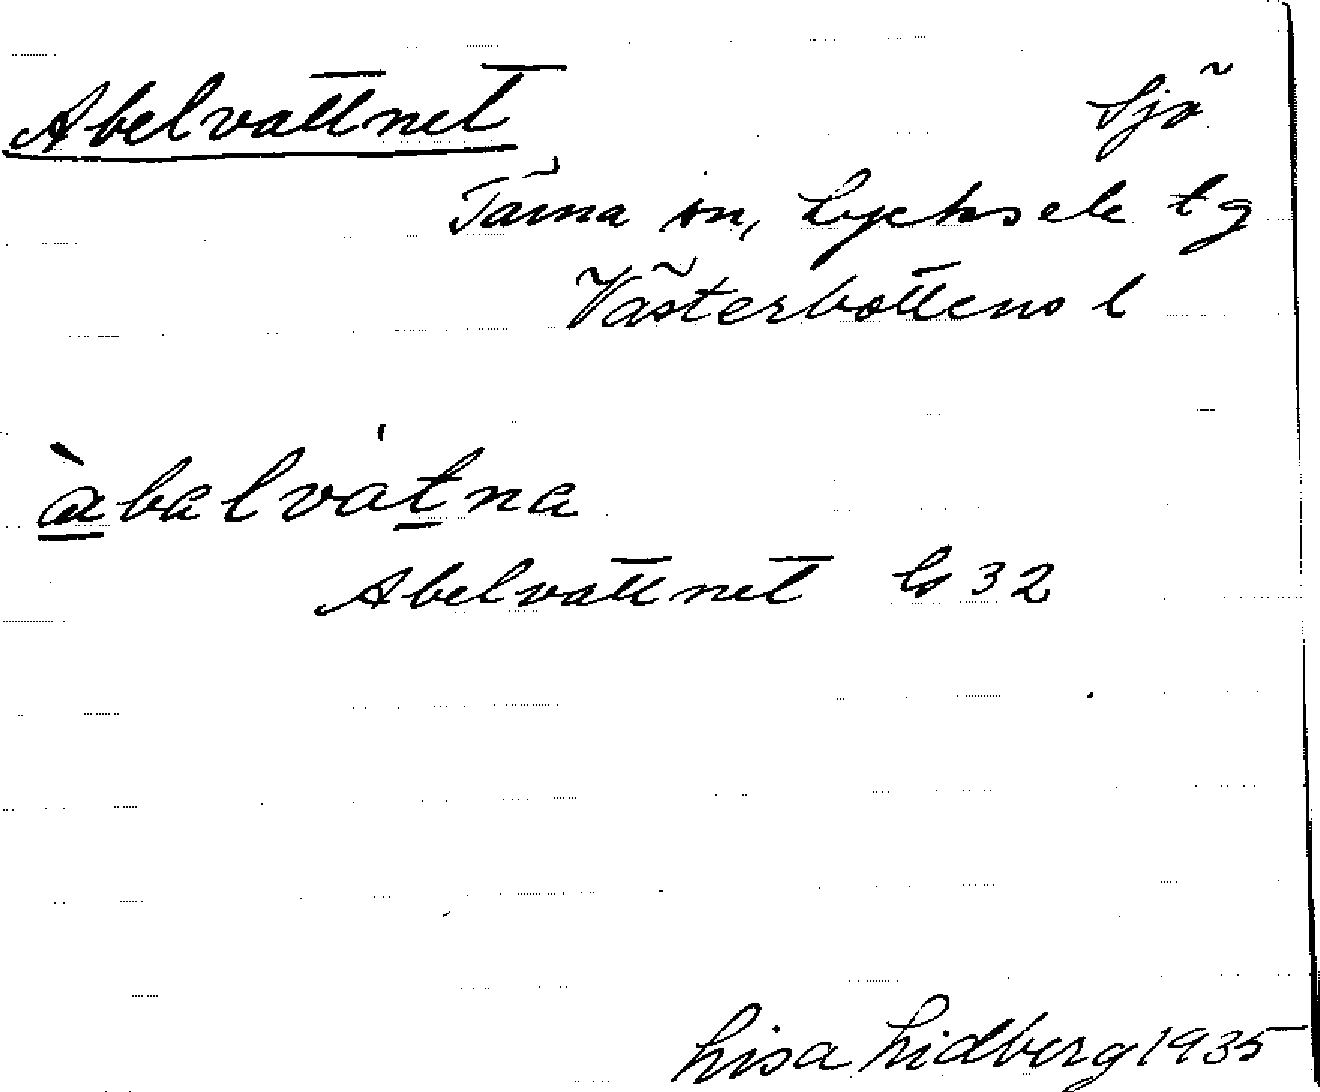 Abelvattnet Sjö
Tärna sn, Lycksele tg
Västerbottens l
àbalvàtna
Abelvattnet Gs 32
Lisa Lidberg 1935